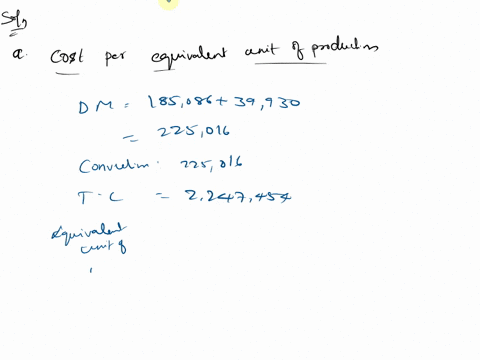 Sol,
a. Cost per equivalent unit of production
DM = 185,086 + 39,930
= 225,016
Conversion. 225,016
T.C = 2,247,454
Equivalent
unit of